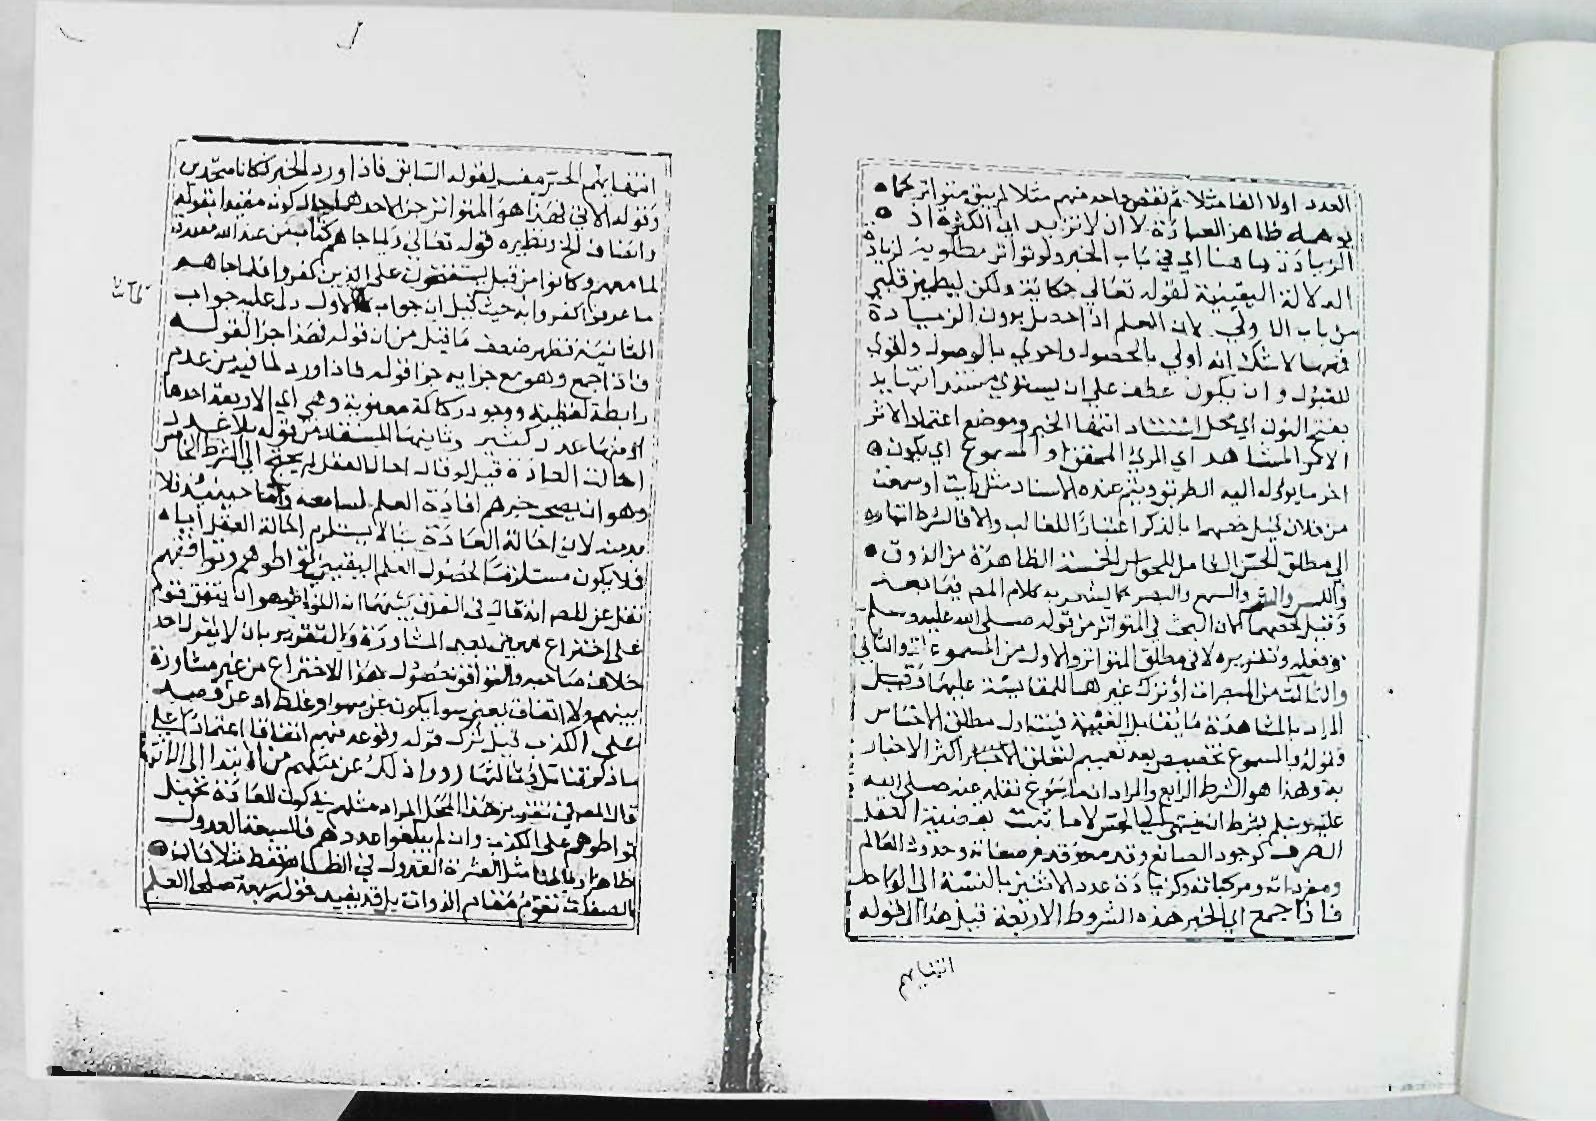 العدد اولا الفا مثلا ثم نقص واحد منهم مثلا لم يبق متواتر كما
يوهمه ظاهر العبارة لا ان لا تزيد اي الكثرة اذ
الزيادة هاهنا اي في باب الخبر ولو تواتر مطلوبة لزيادة
الدلالة اليقينية لقوله تعالي حكاية ولكن ليطمئن قلبي
من باب الاولي لان العلم اذا حصل بدون الزيادة
فمعها لا شك انه اولي بالحصول واحري بالوصول
للقبول وان يكون عطف علي ان يستوي مستند انتهايه
بفتح النون اي محل استناد انتها الخبر وموضع اعتماد الاثر
الامر المشاهد اي المرئ المحقق او المسموع اي يكون
اخر ما يوول اليه الطريق ويتم عنده الاسناد مثل رايت او سمعت
من فلان قيل خصهما بالذكر اعتبارا للغالب والا فالشرط انتهاوه
الي مطلق الحس الشامل للحواس الخمسة الظاهرة من الذوق
واللمس والشم والسمع والبصر كما يشعر به كلام المص فيما بعد
وقيل خصهما لان البحث في المتواتر من قوله صلي الله عليه وسلم
وفعله وتقريره لا في مطلق المتواتر والاول من المسموعات والثاني
والثالث من المبصرات او ترك غيرهما للمقايسة عليهما وقيل
المراد بالمشاهدة ما يقابل الغيبة فيتناول مطلق الاحساس
وقوله والمسموع تخصيص بعد تعميم لتعلق اكثر الاخبار
به وهذا هو الشرط الرابع والمراد انما يسوغ نقله عنه صلي الله
عليه وسلم بشرط ان ينتهي الي الحس لا ما ثبت بقضية العقل
الصرف كوجود الصانع وقدمه وقدم صفاته وحدوث العالم
ومفرداته ومركباته وكزيادة عدد الاثنين بالنسبة الي الواحد
فاذا جمع اي الخبر هذه الشروط الاربعة قيل هذا الي قوله
انتهايهم
انتهايهم الحس يفسر لقوله السابق فاذا ورد الخبر فكانا متحدين
وقوله الاتي فهذا هو المتواتر جزا لاحدهما حال كونه مقيدا بقوله
وانضاف الخ ونظيره قوله تعالي ولما جاهم كتاب من عند الله مصدق
لما معهم وكانوا من قبل يستفتحون علي الذين كفروا فلما جاهم
ما عرفوا كفروا به حيث قيل ان جواب الاول دل عليه جواب
الثانية فظهر ضعف ما قيل من ان قوله فهذا جزا لقوله
فاذا جمع وهو مع جزايه جزا قوله فاذا ورد لما فيه من عدم
رابطة لفظية ووجود ركاكة معنوية وهي اي الاربعة احدها
اي منها عدد كثير وثانيها المستفاد من قوله بلا عدد
احالت العادة قيل لو قال احال العقل لم يحتج الي الشرط الخامس
وهو ان يصحب خبرهم افادة العلم لسامعه واما حينيذ فلا
بد منه لان احالة العادة شيا لا يستلزم احالة العقل اياه
فلا يكون مستلزما لحصول العلم اليقيني تواطوهم وتوافقهم
نقل عن المص انه قال في الفرق بينهما ان التواطو هو ان يتفق قوم
علي اختراع معين بعد المشاورة والتقرير بان لا يقول احد
خلاف صاحبه والتوافق حصول هذا الاختراع من غير مشاورة
بينهم ولا اتفاق يعني سوا يكون عن سهو او غلط او عن قصد
علي الكذب قيل ترك قوله وقوعه منهم اتفاقا اعتمادا علي
ما ذكر فتامل وثالثها رووا ذلك عن مثلهم من الابتدا الي الانتها
قال المص في تقرير هذا المحل المراد مثلهم في كون العادة تحيل
تواطوهم علي الكذب وان لم يبلغوا عددهم فالسبعة العدول
ظاهرا وباطنا مثل العشرة العدول في الظاهر فقط مثلا فان
الصفات تقوم مقام الذوات بل قد يفيد قول سبعة صلحا العلم